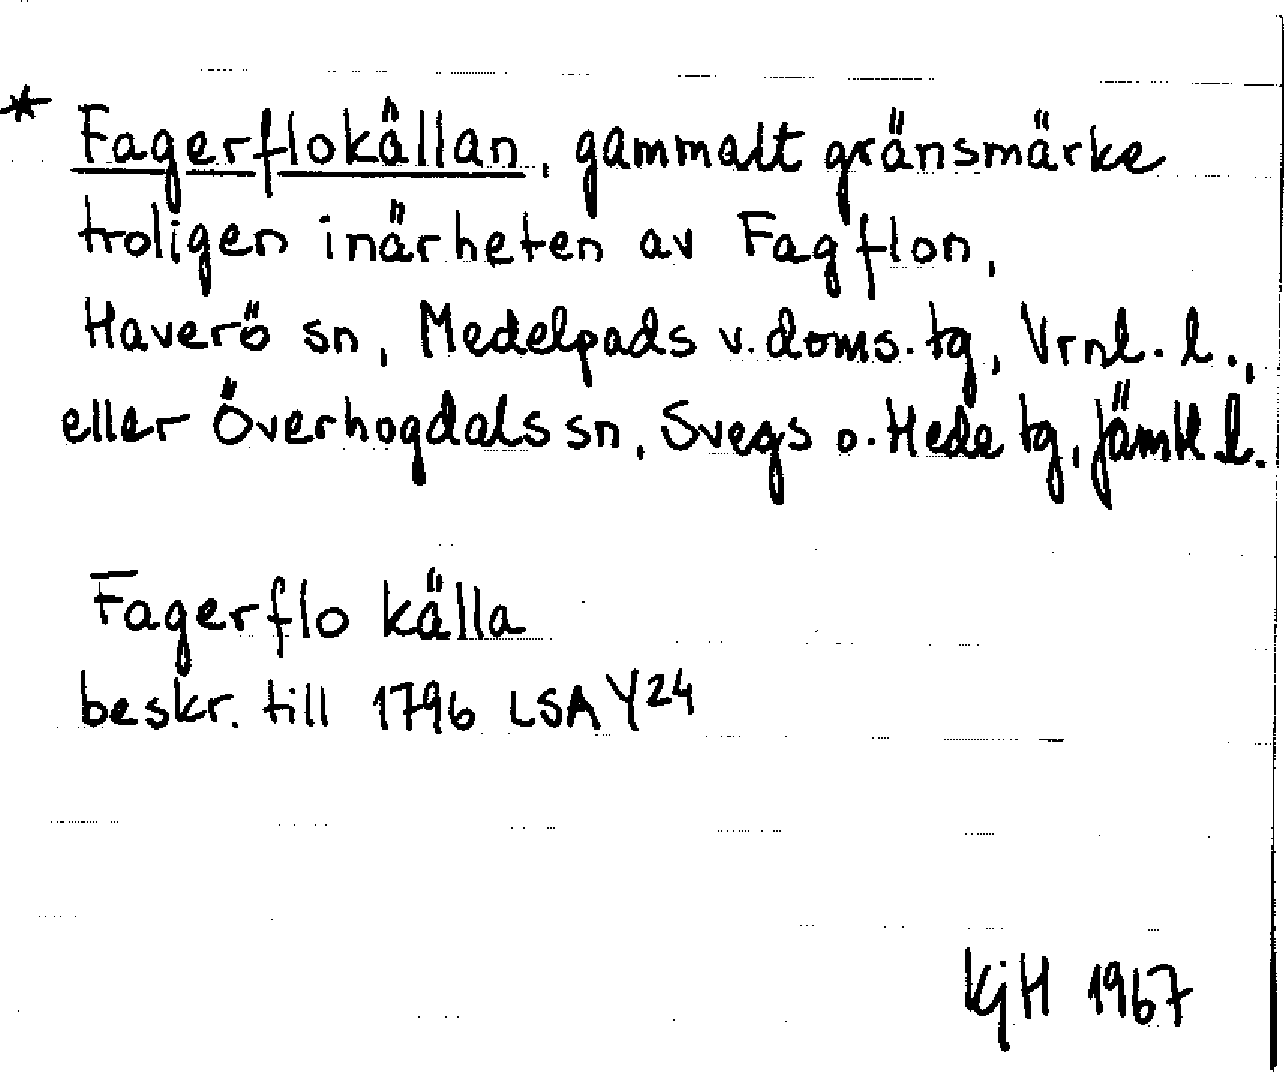 * Fagerflokällan, gammalt gränsmärke
troligen inärheten av Fag'flon,
Haverö sn, Medelpads v. doms. tg, Vrnl. l.,
eller Överhogdals sn, Svegs o. Hede tg, Jämtl l.
Fagerflo källa
beskr. till 1796 LSA Y24
KjH 1967